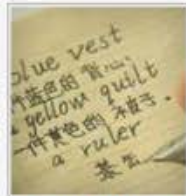 blue vest
件蓝色的
a yellow quilt
一件黄色的
a ruler